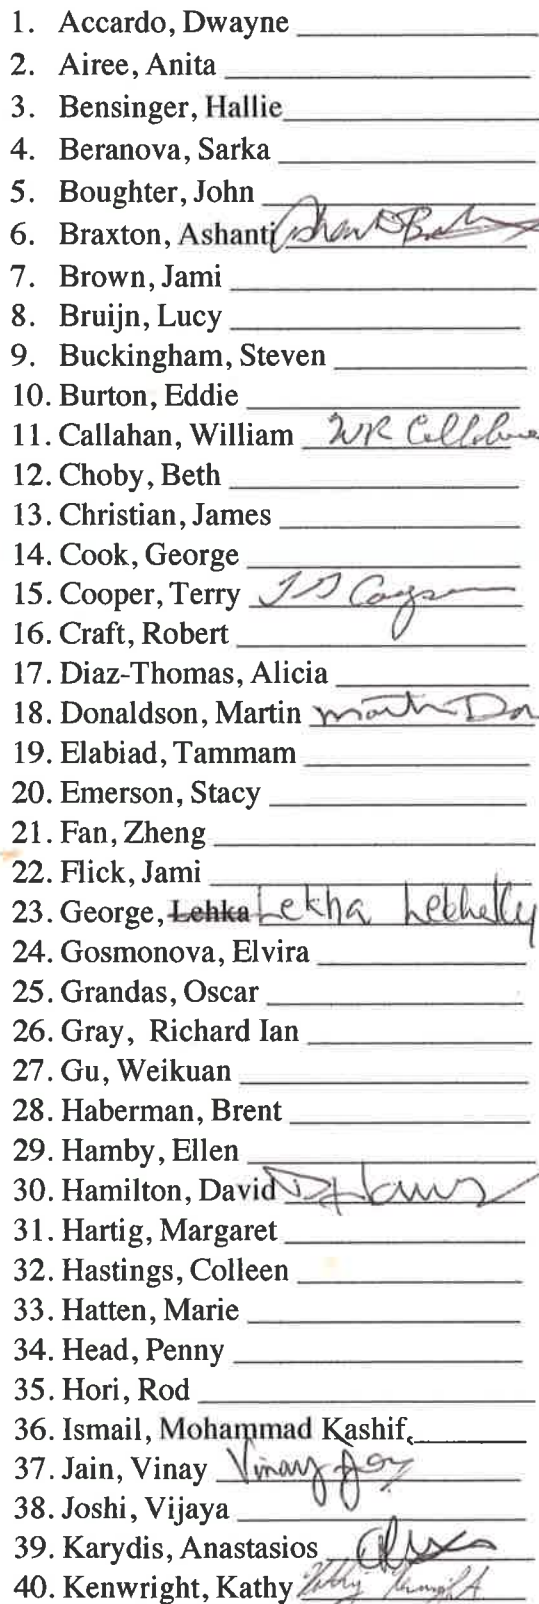 1. Accardo, Dwayne
2. Airee, Anita
3. Bensinger, Hallie
4. Beranova, Sarka
5. Boughter, John
6. Braxton, Ashanti
7. Brown, Jami
8. Bruijn, Lucy
9. Buckingham, Steven
10. Burton, Eddie
11. Callahan, William WR
12. Choby, Beth
13. Christian, James
14. Cook, George
15. Cooper, Terry
16. Craft, Robert
17. Diaz-Thomas, Alicia
18. Donaldson, Martin Martin Don
19. Elabiad, Tammam
20. Emerson, Stacy
21. Fan, Zheng
22. Flick, Jami
23. George, Lehka Lekha
24. Gosmonova, Elvira
25. Grandas, Oscar
26. Gray, Richard Ian
27. Gu, Weikuan
28. Haberman, Brent
29. Hamby, Ellen
30. Hamilton, David
31. Hartig, Margaret
32. Hastings, Colleen
33. Hatten, Marie
34. Head, Penny
35. Hori, Rod
36. Ismail, Mohammad Kashif,
37. Jain, Vinay Vinay
38. Joshi, Vijaya
39. Karydis, Anastasios
40. Kenwright, Kathy Kathy